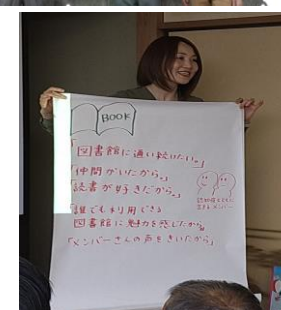 BOOK
「図書館に通い続けたい。」
「仲間がいたから。」
「読書が好きだから。」
認知症とともに
生きるメンバー
「誰でも利用できる
図書館に魅力を感じたから。」
「メンバーさんの声をきいたから」